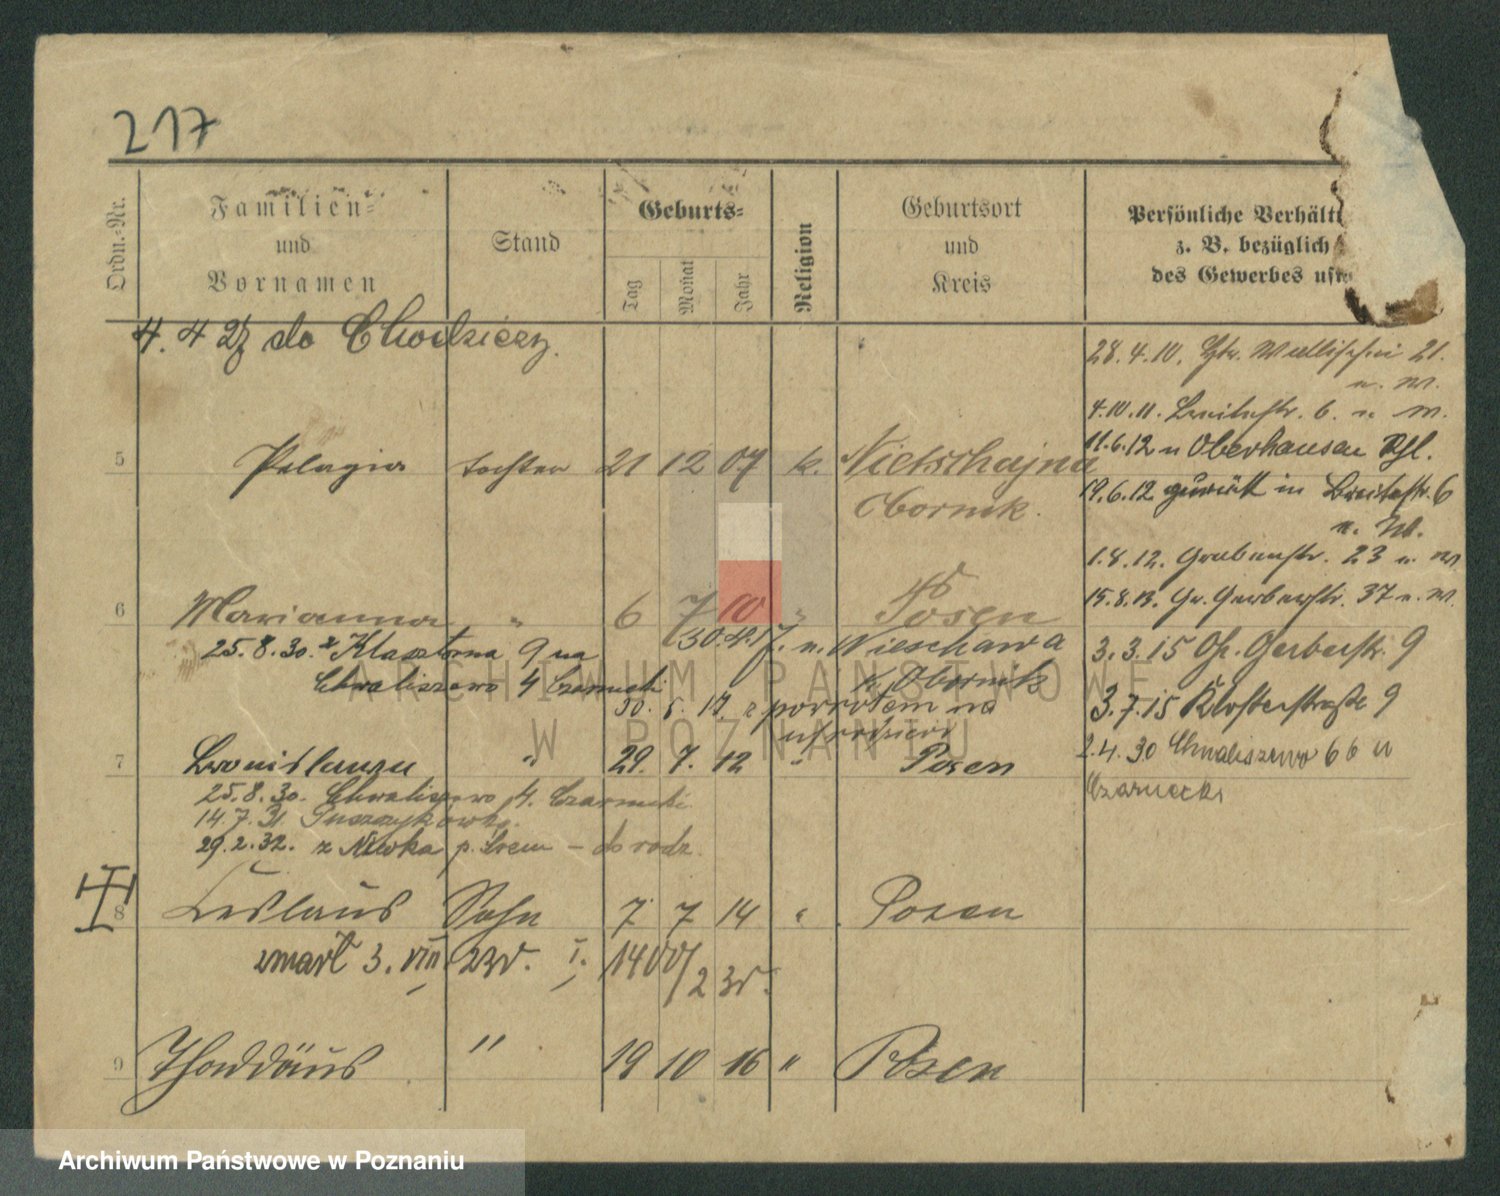 217
Ordn.-Nr.
Familien-
und
Vornamen
Stand
Geburts-
Tag
Monat
Jahr
Religion
Geburtsort
und
Kreis
Persönliche Verhält
z. B. bezüglich
des Gewerbes usw
4. 4 27 do Chodzieży.
28.4.10. Wallischei 21.
n. W.
4.10.11. Breitestr. 6. n W.
5 Pelagia tochter 21 12 07 k. Nietschajna
Obornik.
11.6.12 n Oberhausen
19.6.12 zurück in Breitestr. 6
n. W.
1.8.12. Grabenstr. 23 n. W
6 Marianna " 6 7 10 " Posen
15.8.13. Gr. Gerberstr. 37 n. W.
25.8.30. z Klasztorna 9 na
Chwaliszewo 4 Czarnecki
30.4.17. n. Nieschawa
k. Obornik
30. 5. 17. z powrotem na
3.3.15 Gr. Gerberstr. 9
3.7.15 Klosterstraße 9
7 Bronislawa " 29. 7. 12 " Posen
2.4.30 Chwaliszewo 66 u
Czarnecki
25.8.30. Chwaliszewo 4. Czarnecki
14.7.31 Puszczykowo.
29.2.32. z Niwka p. Śrem – do rodz.
8 Ceslaus Sohn 7 7 14 " Posen
zmarł 3. VIII 23r. I. 1400/23r.
9 Thaddäus " 19 10 16 " Posen
ARCHIWUM PAŃSTWOWE
W POZNANIU
Archiwum Państwowe w Poznaniu